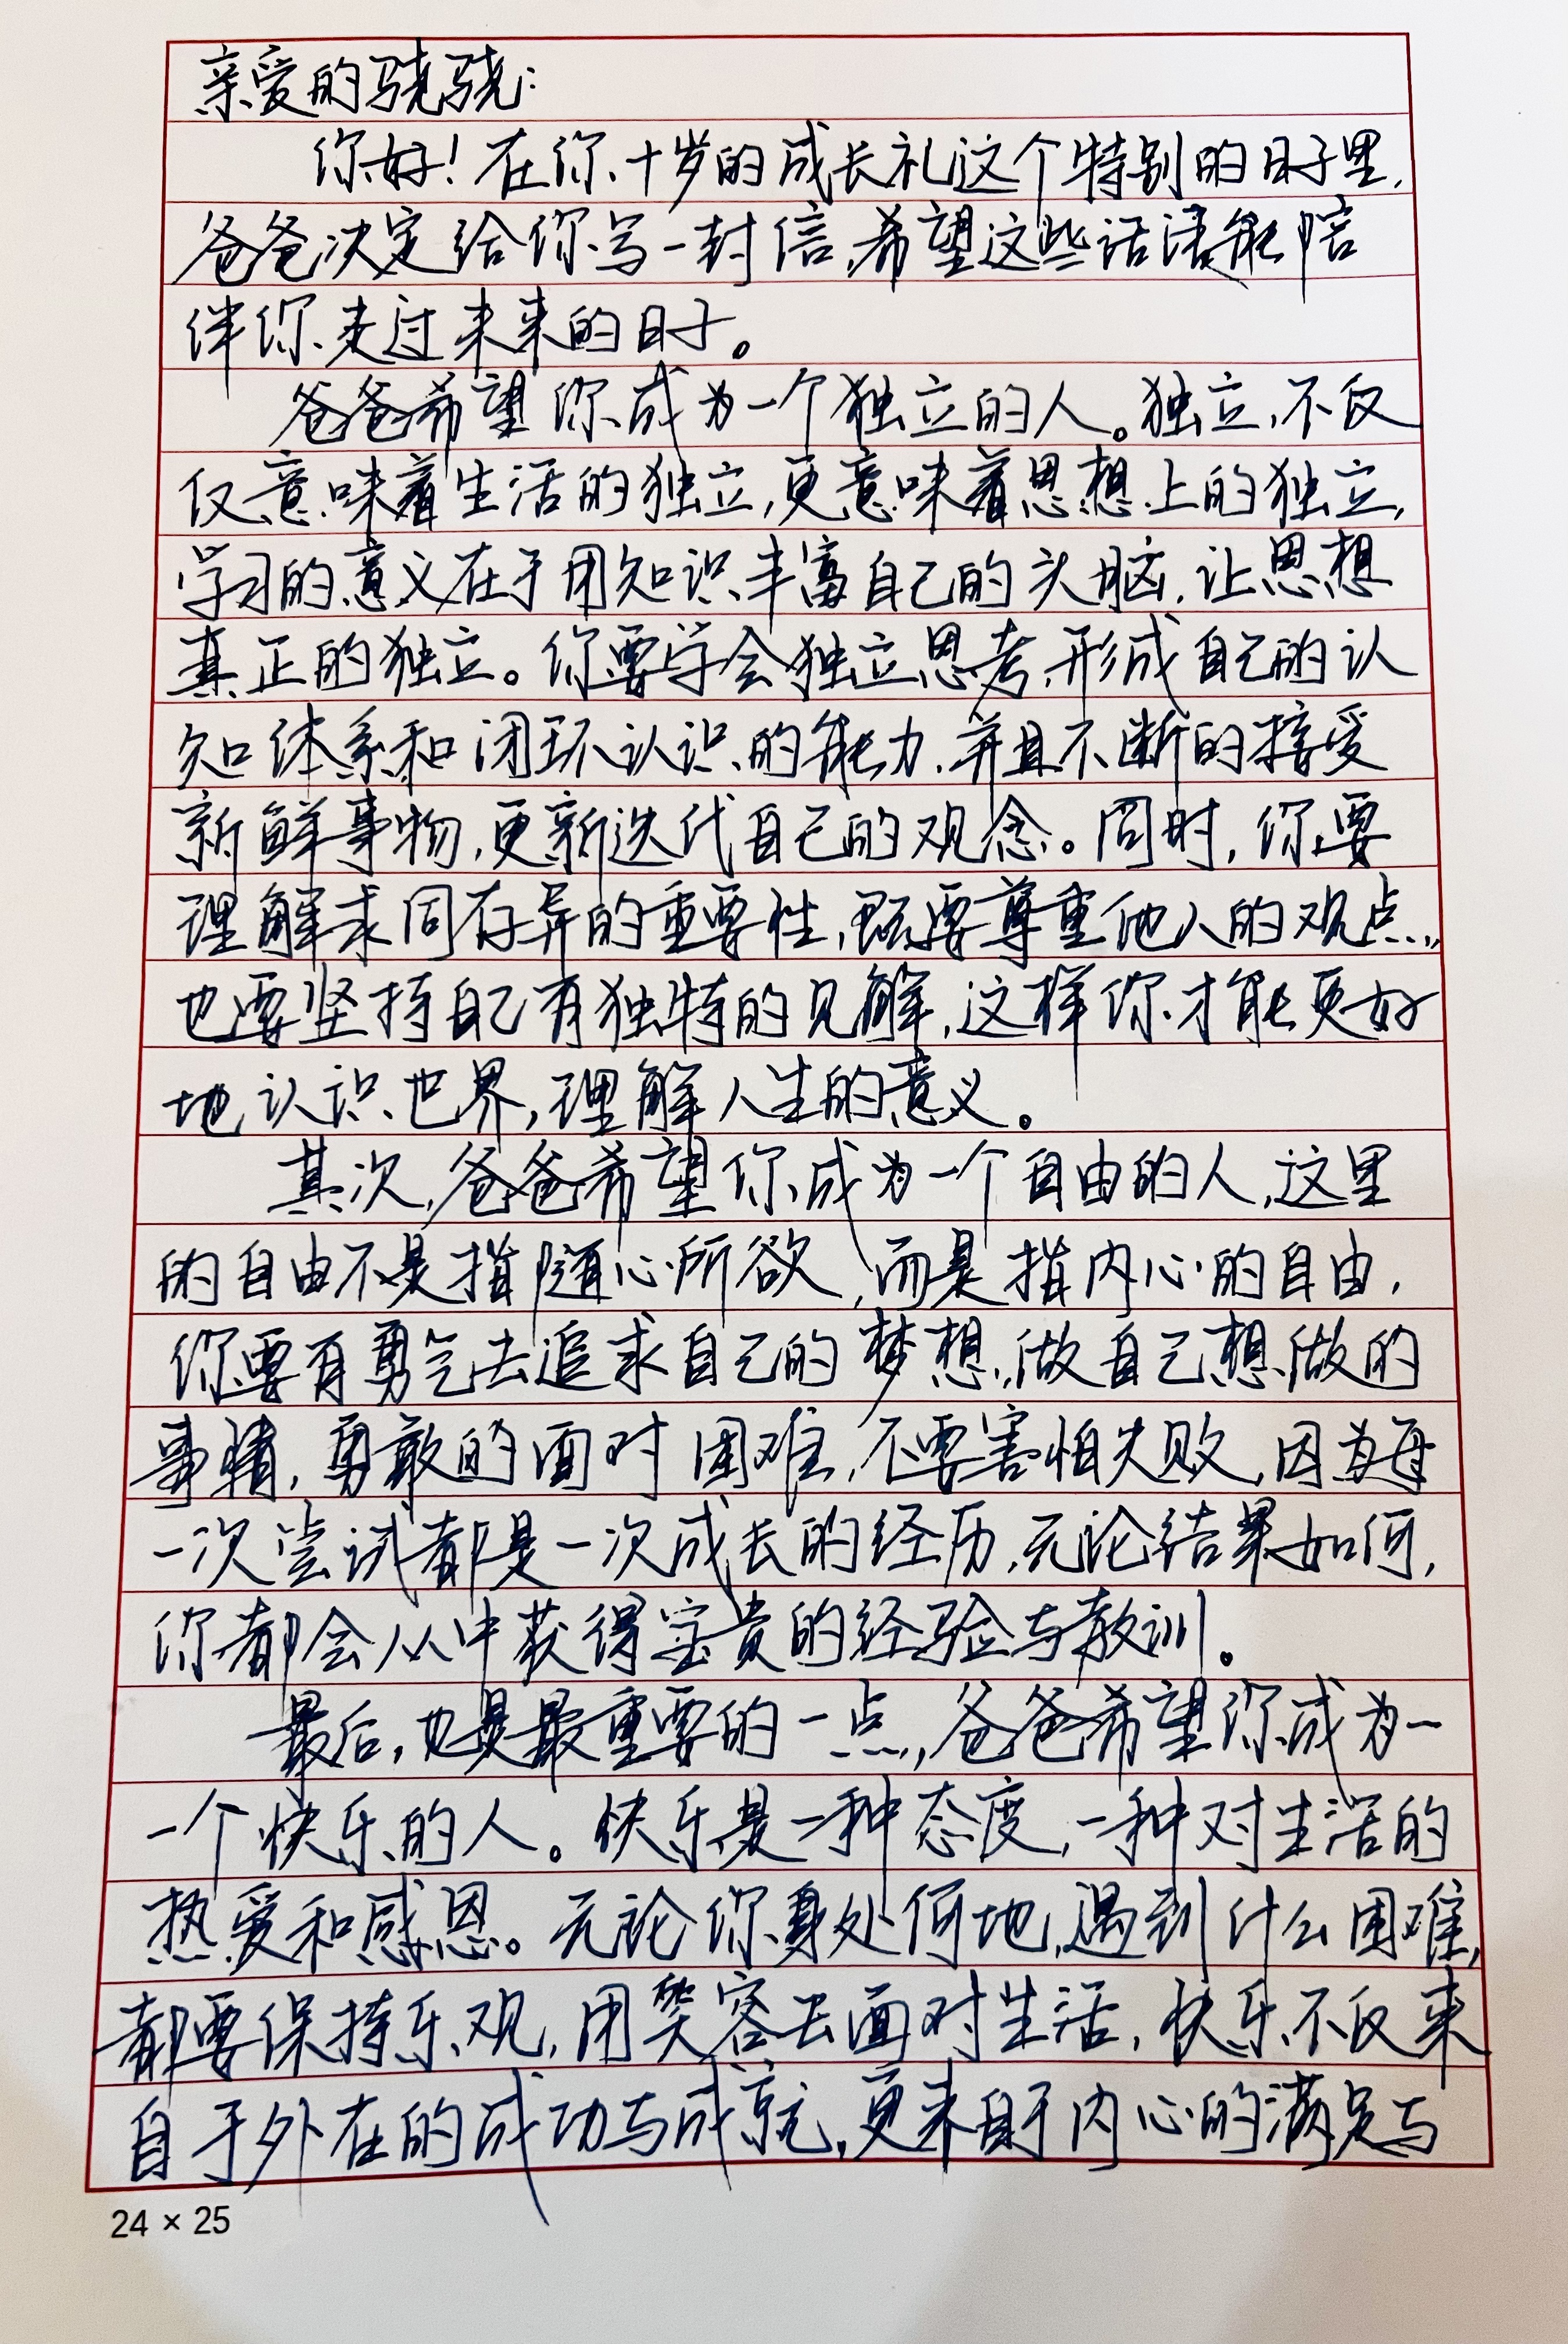 亲爱的骁骁:
你好!在你十岁的成长礼这个特别的日子里,
爸爸决定给你写一封信,希望这些话语能陪
伴你走过未来的日子。
爸爸希望你成为一个独立的人。独立,不仅
仅意味着生活的独立,更意味着思想上的独立,
学习的意义在于用知识丰富自己的头脑,让思想
真正的独立。你要学会独立思考,形成自己的认
知体系和闭环认识的能力,并且不断的接受
新鲜事物,更新迭代自己的观念。同时,你要
理解求同存异的重要性,既要尊重他人的观点,
也要坚持自己有独特的见解,这样你才能更好
地认识世界,理解人生的意义。
其次,爸爸希望你成为一个自由的人,这里
的自由不是指随心所欲,而是指内心的自由,
你要有勇气去追求自己的梦想,做自己想做的
事情,勇敢的面对困难,不要害怕失败,因为每
一次尝试都是一次成长的经历,无论结果如何,
你都会从中获得宝贵的经验与教训。
最后,也是最重要的一点,爸爸希望你成为一
一个快乐的人。快乐是一种态度,一种对生活的
热爱和感恩。无论你身处何地,遇到什么困难,
都要保持乐观,用笑容去面对生活,快乐不仅来
自于外在的成功与成就,更来自于内心的满足与
24 × 25